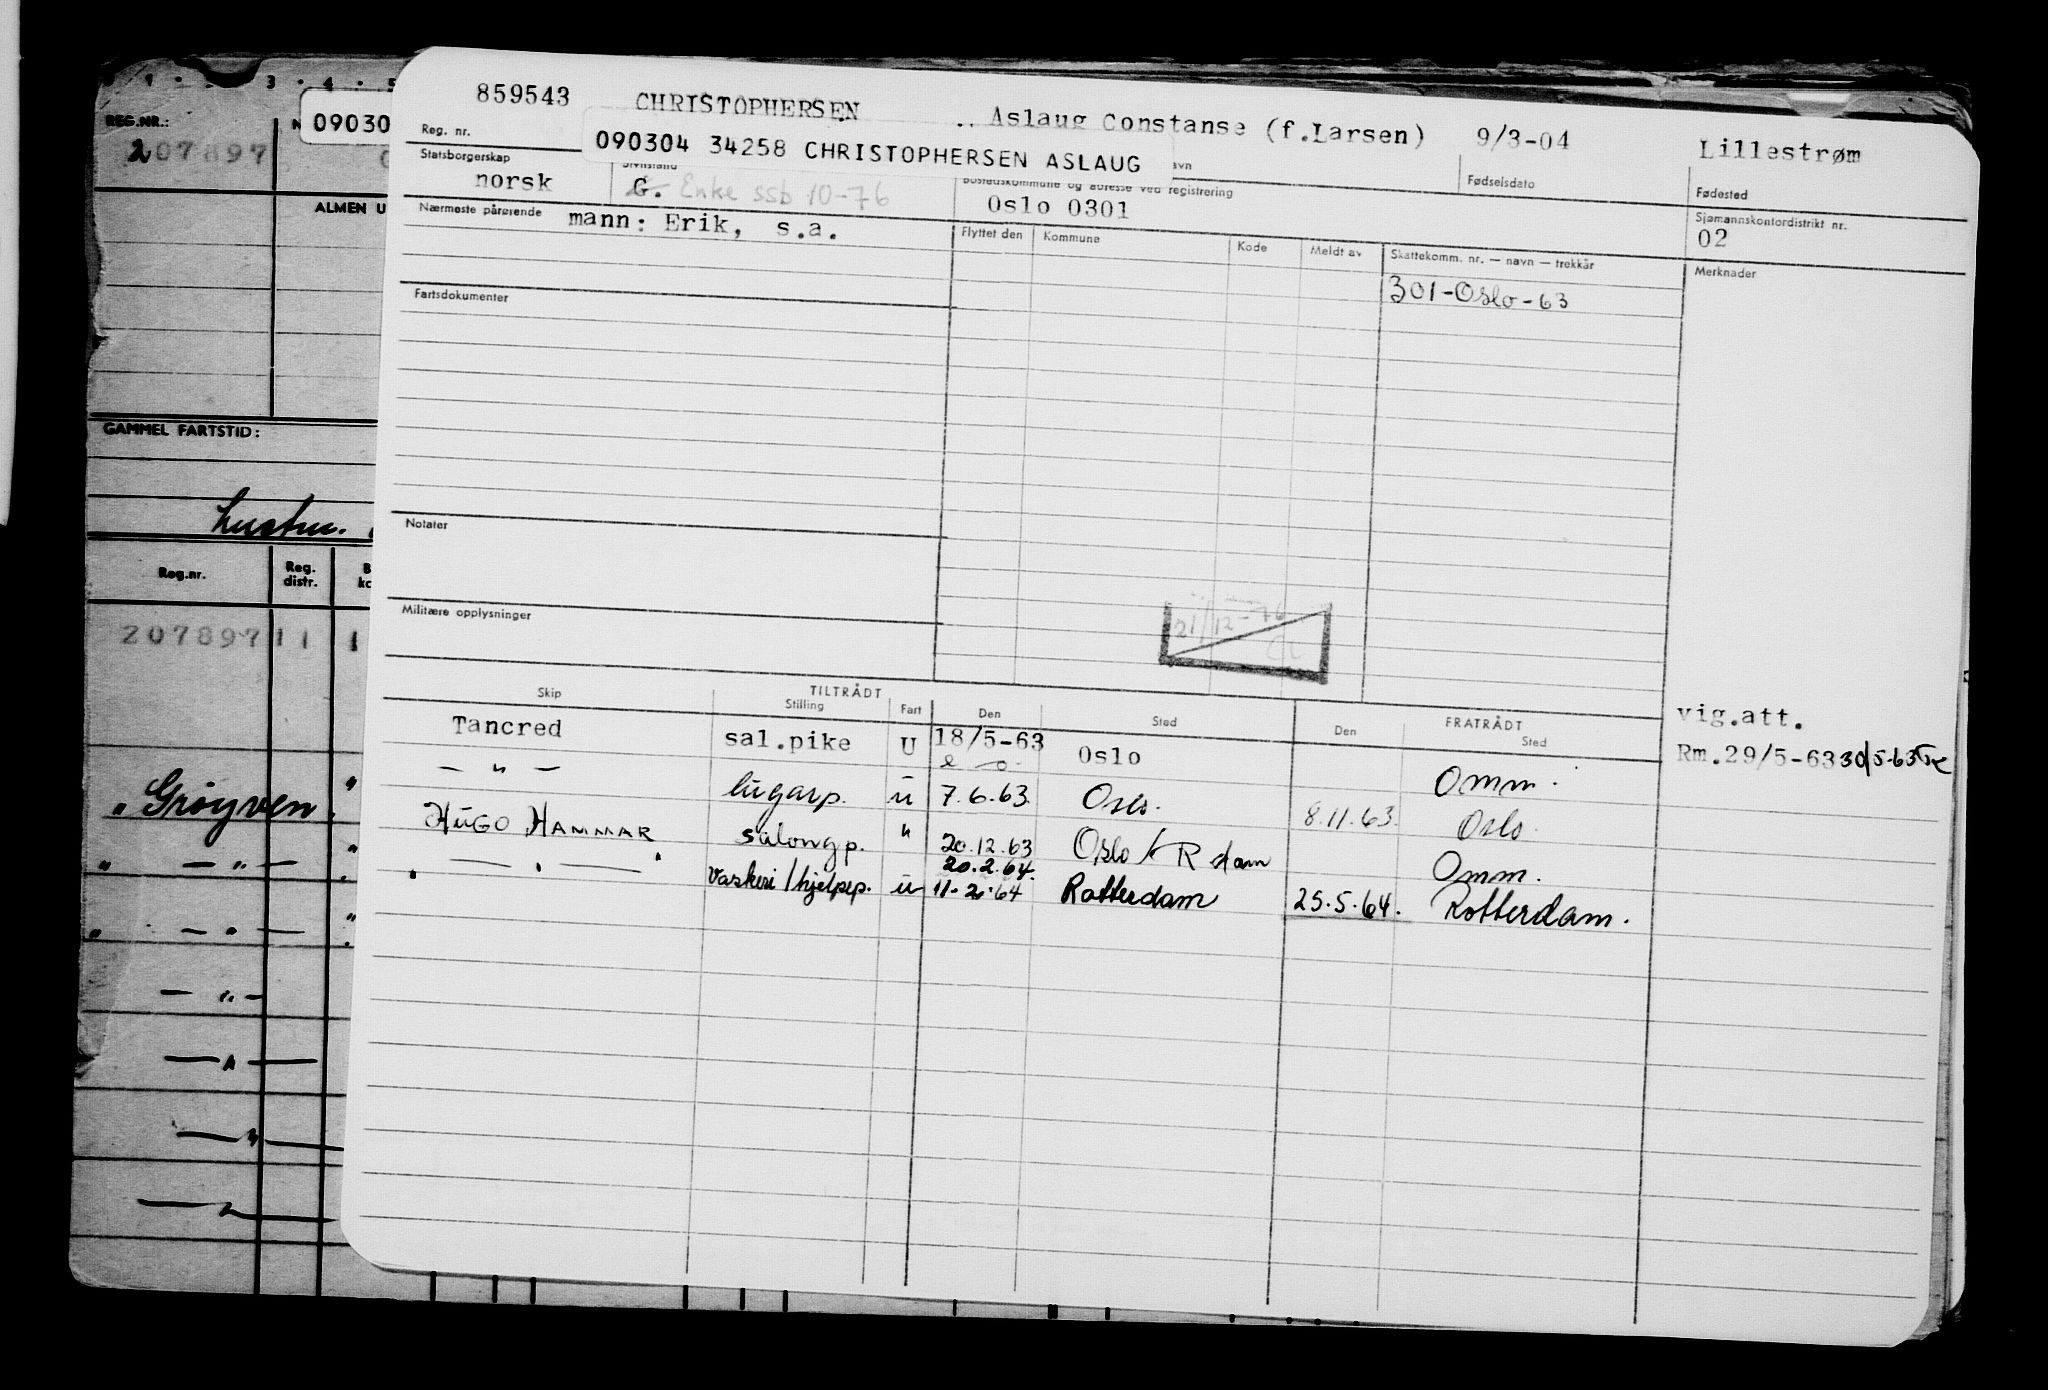 859543 CHRISTOPHERSEN Aslaug Constanse (f.Larsen) 9/3-04 Lillestrøm
Reg. nr. 090304 34258 CHRISTOPHERSEN ASLAUG Fødselsdato Fødested
Statsborgerskap norsk G. Enke ssb 10-76 Bostedskommune og adresse ved registrering Oslo 0301 Sjømannskontordistrikt nr. 02
Nærmeste pårørende mann: Erik, s.a. Flyttet den Kommune Kode Meldt av Skattekomm. nr. — navn — trekkår Merknader
301-Oslo-63
Fartsdokumenter
Notater
Militære opplysninger
21/12-76
TILTRÅDT FRATRÅDT
Skip Stilling Fart Den Sted Den Sted
vig.att.
Tancred sal.pike U 18/5-63 Oslo Omm. Rm.29/5-63 30/5-63
— " — lugarp. u 7.6.63. Oslo. 8.11.63. Oslo.
HUGO HAMMAR salongp. " 20.12.63 Oslo / R dam Omm.
20.2.64.
— " — vaskeri/hjelpep. u 11-2-64 Rotterdam 25.5.64. Rotterdam.
REG.NR.:
207897
09030
ALMEN U
GAMMEL FARTSTID:
Reg.nr. Reg. distr.
207897 11 1
" Grøyven. "
" — " — "
" — " — "
— " —
— " —
— " —
— " —
3 · 4 · 5